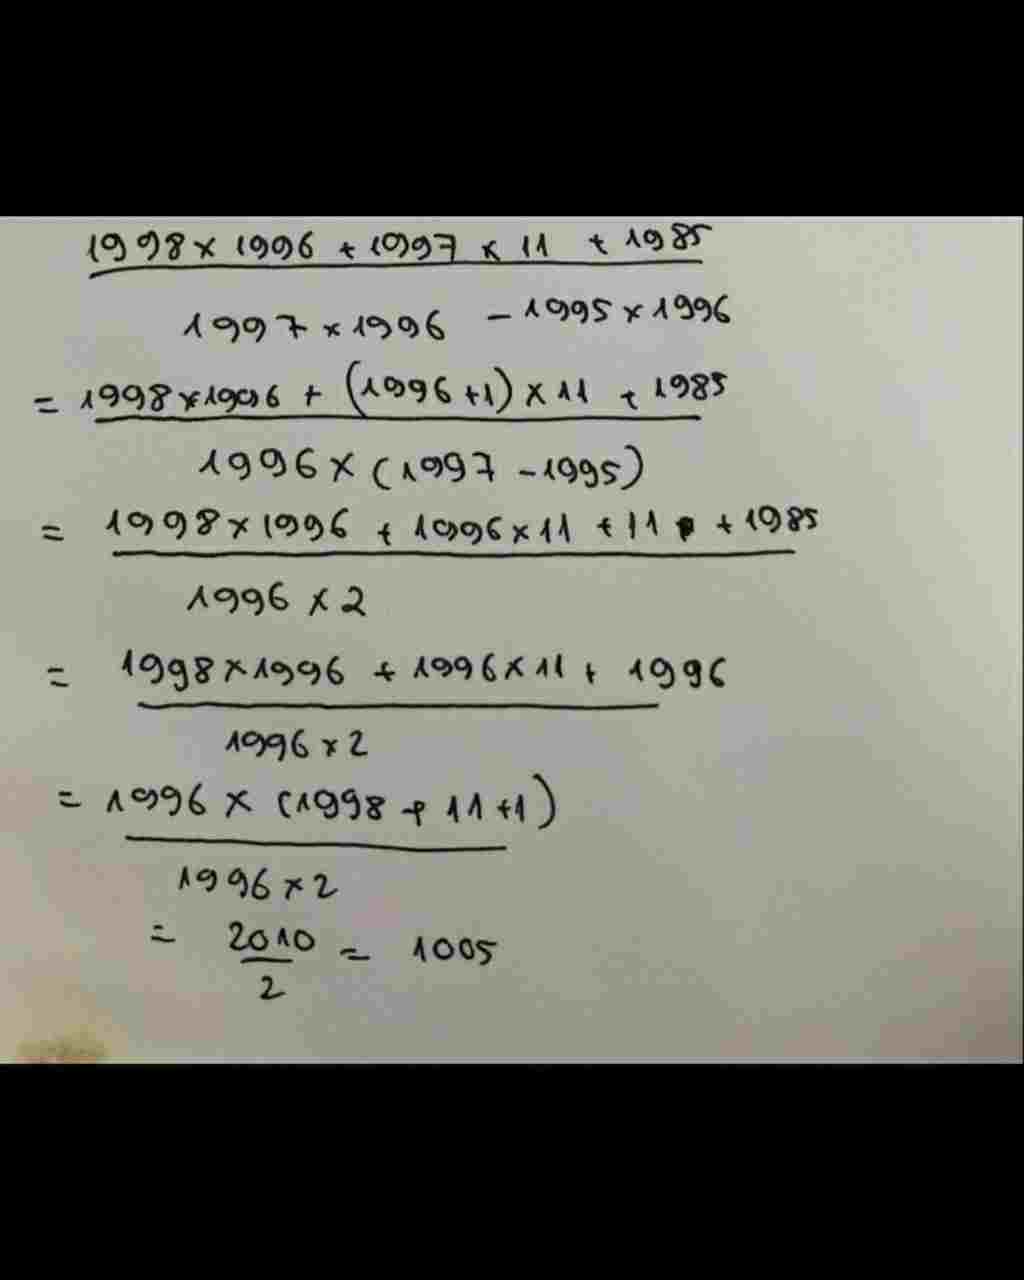 1998 × 1996 + 1997 × 11 + 1985
1997 × 1996 - 1995 × 1996
= 1998 × 1996 + (1996 + 1) × 11 + 1985
1996 × (1997 - 1995)
= 1998 × 1996 + 1996 × 11 + 11 + 1985
1996 × 2
= 1998 × 1996 + 1996 × 11 + 1996
1996 × 2
= 1996 × (1998 + 11 + 1)
1996 × 2
= 2010 = 1005
2